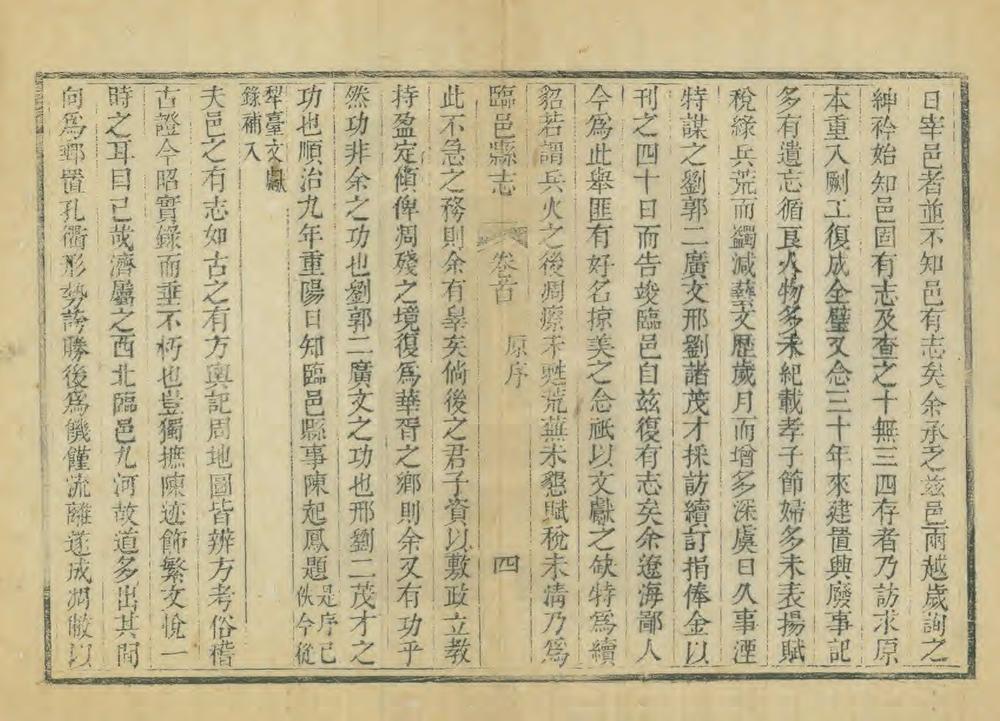 日宰邑者並不知邑有志矣余承乏兹邑兩越歲詢之
紳衿始知邑固有志及查之十無三四存者乃訪求原
本重入剞工復成全璧又念三十年來建置興廢事記
多有遺忘循良人物多未紀載孝子節婦多未表揚賦
稅緣兵荒而蠲減藝文歷歲月而增多深虞日久事湮
特謀之劉郭二廣文邢劉諸茂才採訪續訂捐俸金以
刊之四十日而告竣臨邑自玆復有志矣余遼海鄙人
今爲此舉匪有好名掠美之念祇以文獻之缺特爲續
貂若謂兵火之後凋瘵未甦荒蕪未懇賦稅未清乃爲
臨邑縣志 卷首 原序 四
此不急之務則余有辠矣倘後之君子資以敷政立教
持盈定傾俾凋殘之境復爲華胥之鄉則余又有功乎
然功非余之功也劉郭二廣文之功也邢劉二茂才之
功也順治九年重陽日知臨邑縣事陳起鳳題 是序已
佚今從
犁臺文獻
錄補入
夫邑之有志如古之有方輿記周地圖皆辨方考俗稽
古證今昭實錄而垂不朽也豈獨摭陳迹飾繁文悅一
時之耳目已哉濟屬之西北臨邑九河故道多出其間
向爲郵置孔衢形勢誇勝後爲饑饉流離遂成凋敝以